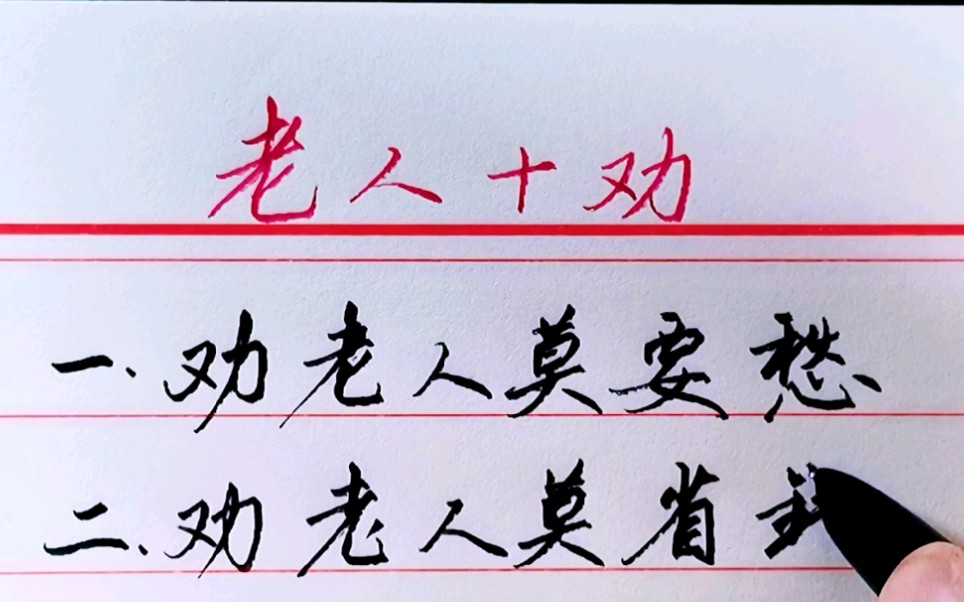 老人十劝
一.劝老人莫要愁
二.劝老人莫省